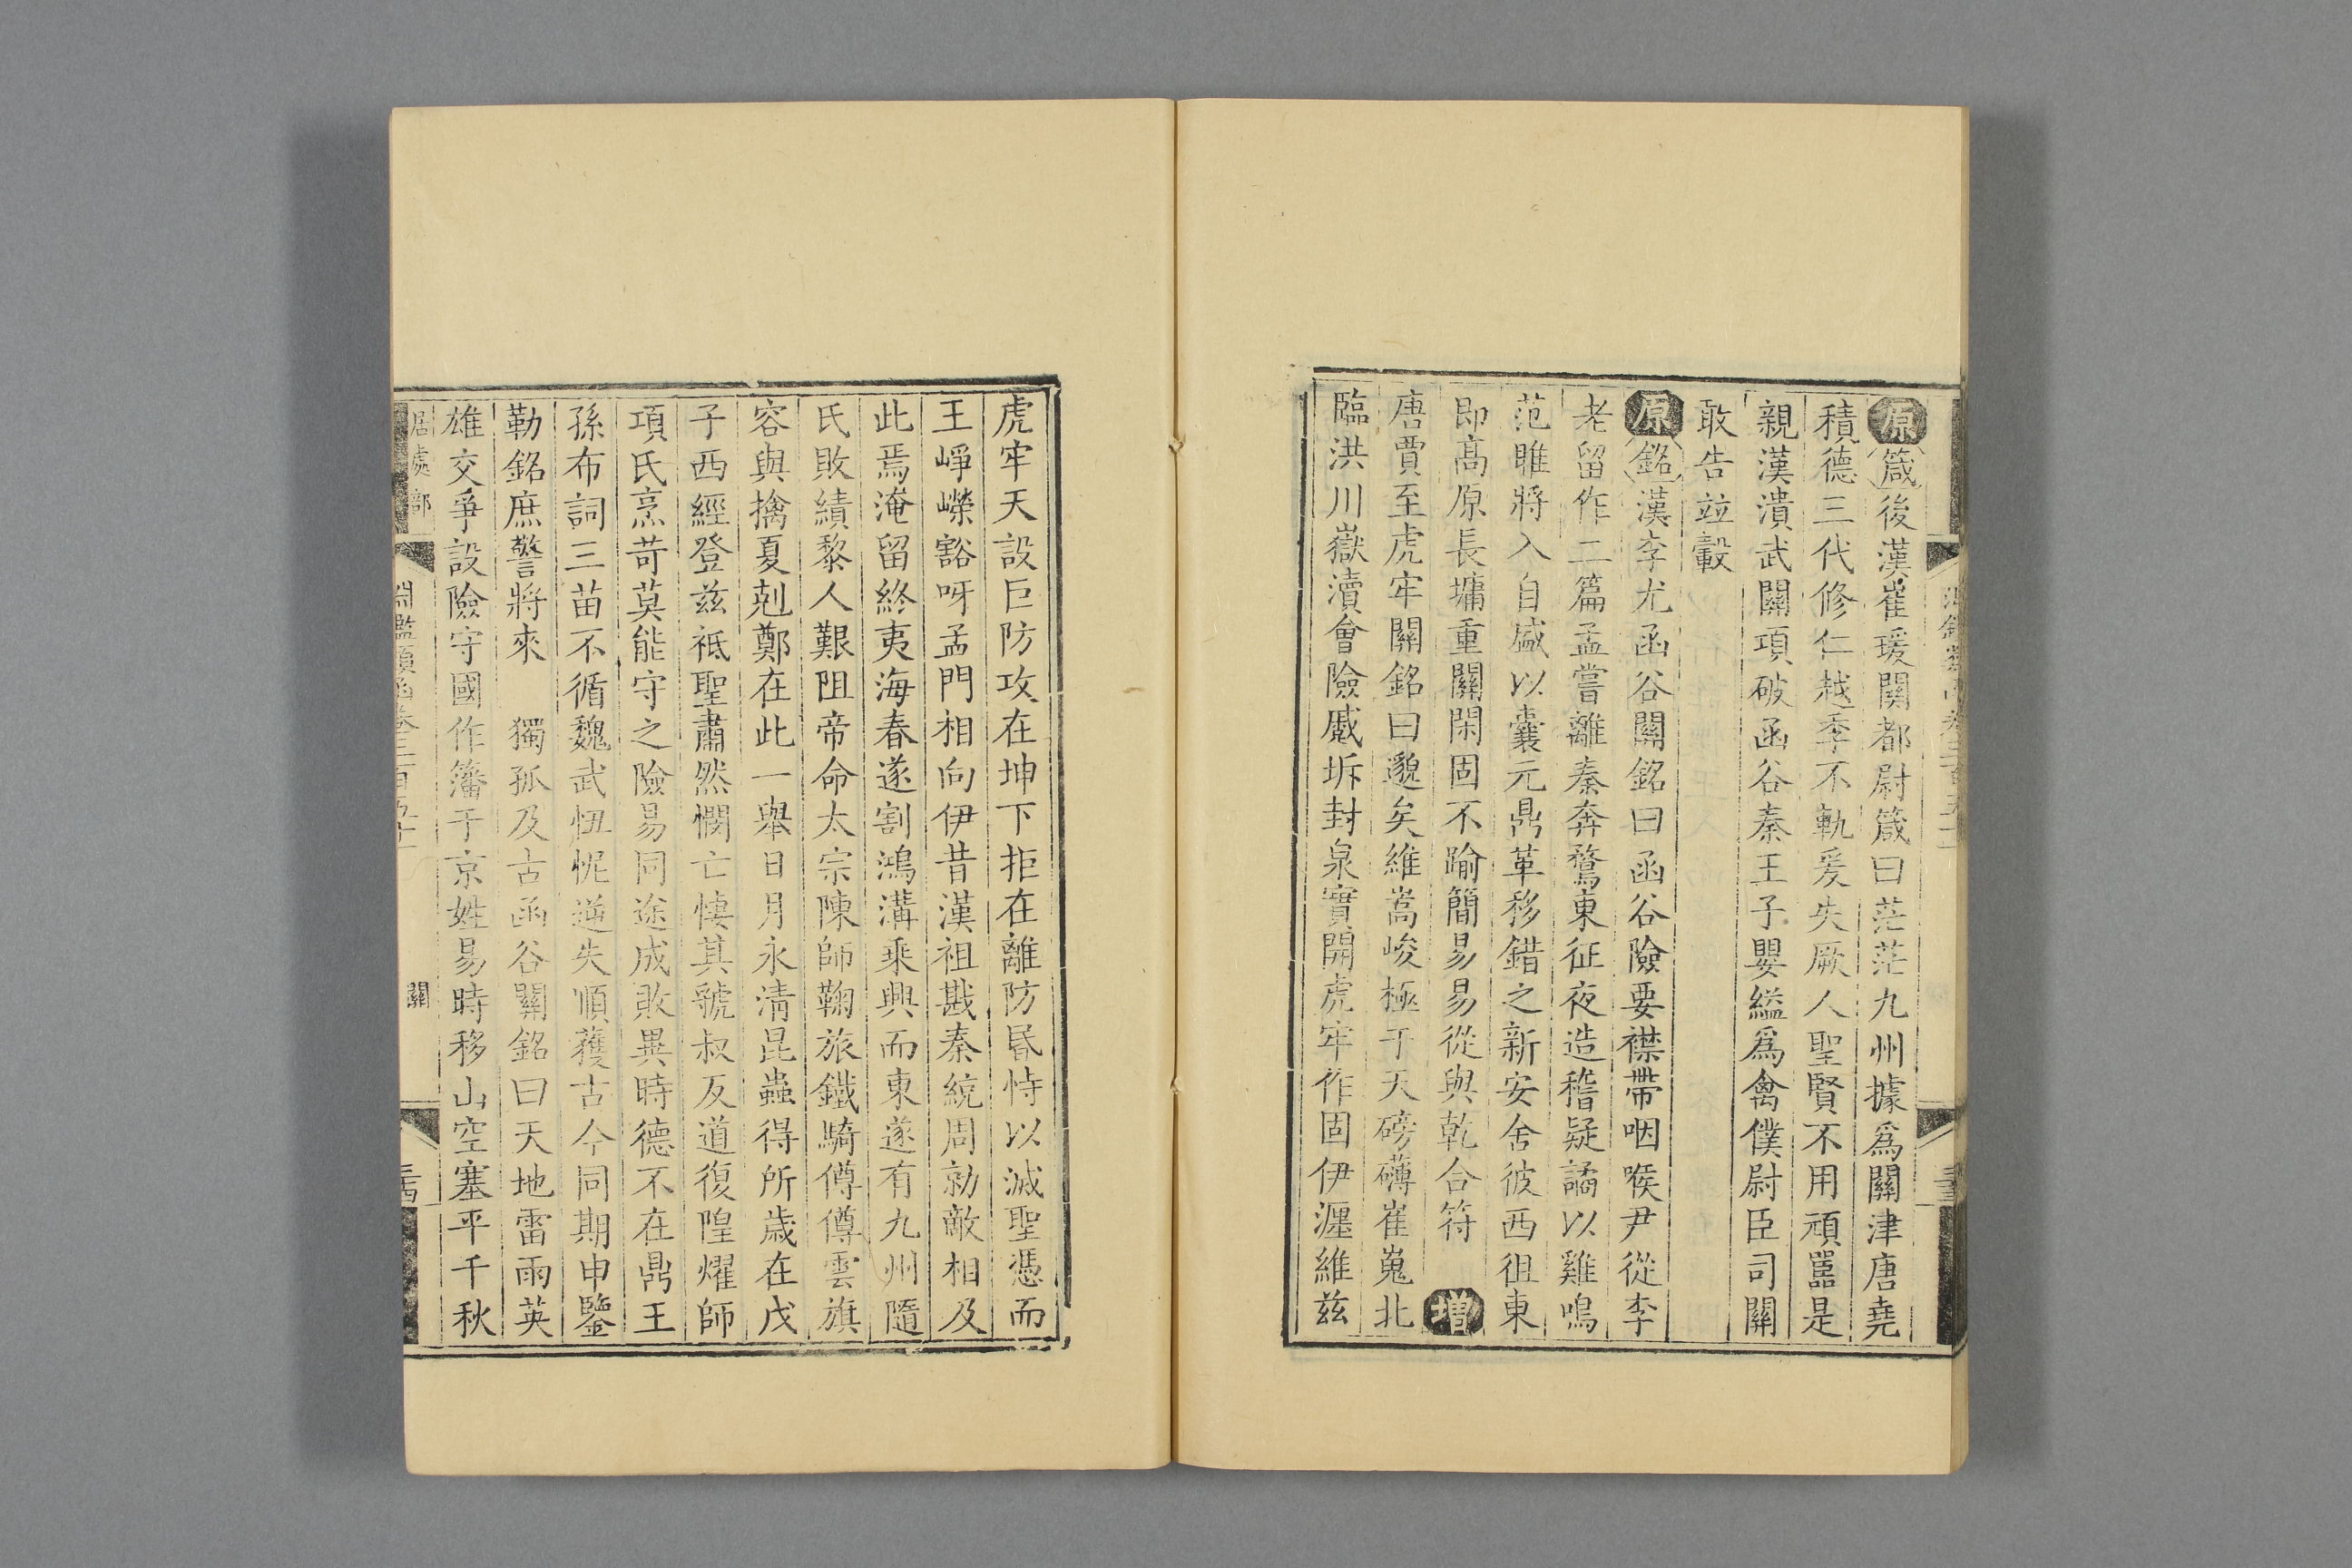 原箴後漢崔瑗關都尉箴曰茫茫九州據爲關津唐堯
積德三代修仁越季不軌爰失厥人聖賢不用頑嚚是
親漢潰武關項破函谷秦王子嬰縊爲禽僕尉臣司關
敢告竝轂
原銘漢李尤函谷關銘曰函谷險要襟帶咽喉尹從李
老留作二篇孟嘗離秦奔騖東征夜造稽疑譎以雞鳴
范睢將入自盛以囊元鼎革移錯之新安舍彼西徂東
即高原長墉重關閑固不踰簡易易從與乾合符 增
唐賈至虎牢關銘曰邈矣維嵩峻極于天磅礴崔嵬北
臨洪川嶽瀆會險巇坼封泉實開虎牢作固伊瀍維茲
虎牢天設巨防攻在坤下拒在離防昏恃以滅聖憑而
王崢嶸豁呀孟門相向伊昔漢祖戡秦統周勍敵相及
此焉淹留終夷海春遂割鴻溝乘興而東遂有九州隨
氏敗績黎人艱阻帝命太宗陳師鞠旅鐵騎僔僔雲旗
容與擒夏剋鄭在此一舉日月永清昆蟲得所歲在戊
子西經登茲祗聖肅然憫亡悽其虢叔反道復隍燿師
項氏烹苛莫能守之險易同途成敗異時德不在鼎王
孫布詞三苗不循魏武忸怩遒失順蒦古今同期申鑒
勒銘庶警將來 獨孤及古函谷關銘曰天地雷雨英
雄交爭設險守國作籓于京姓易時移山空塞平千秋
居處部
淵鑑類函卷三百五十一
關
三十四